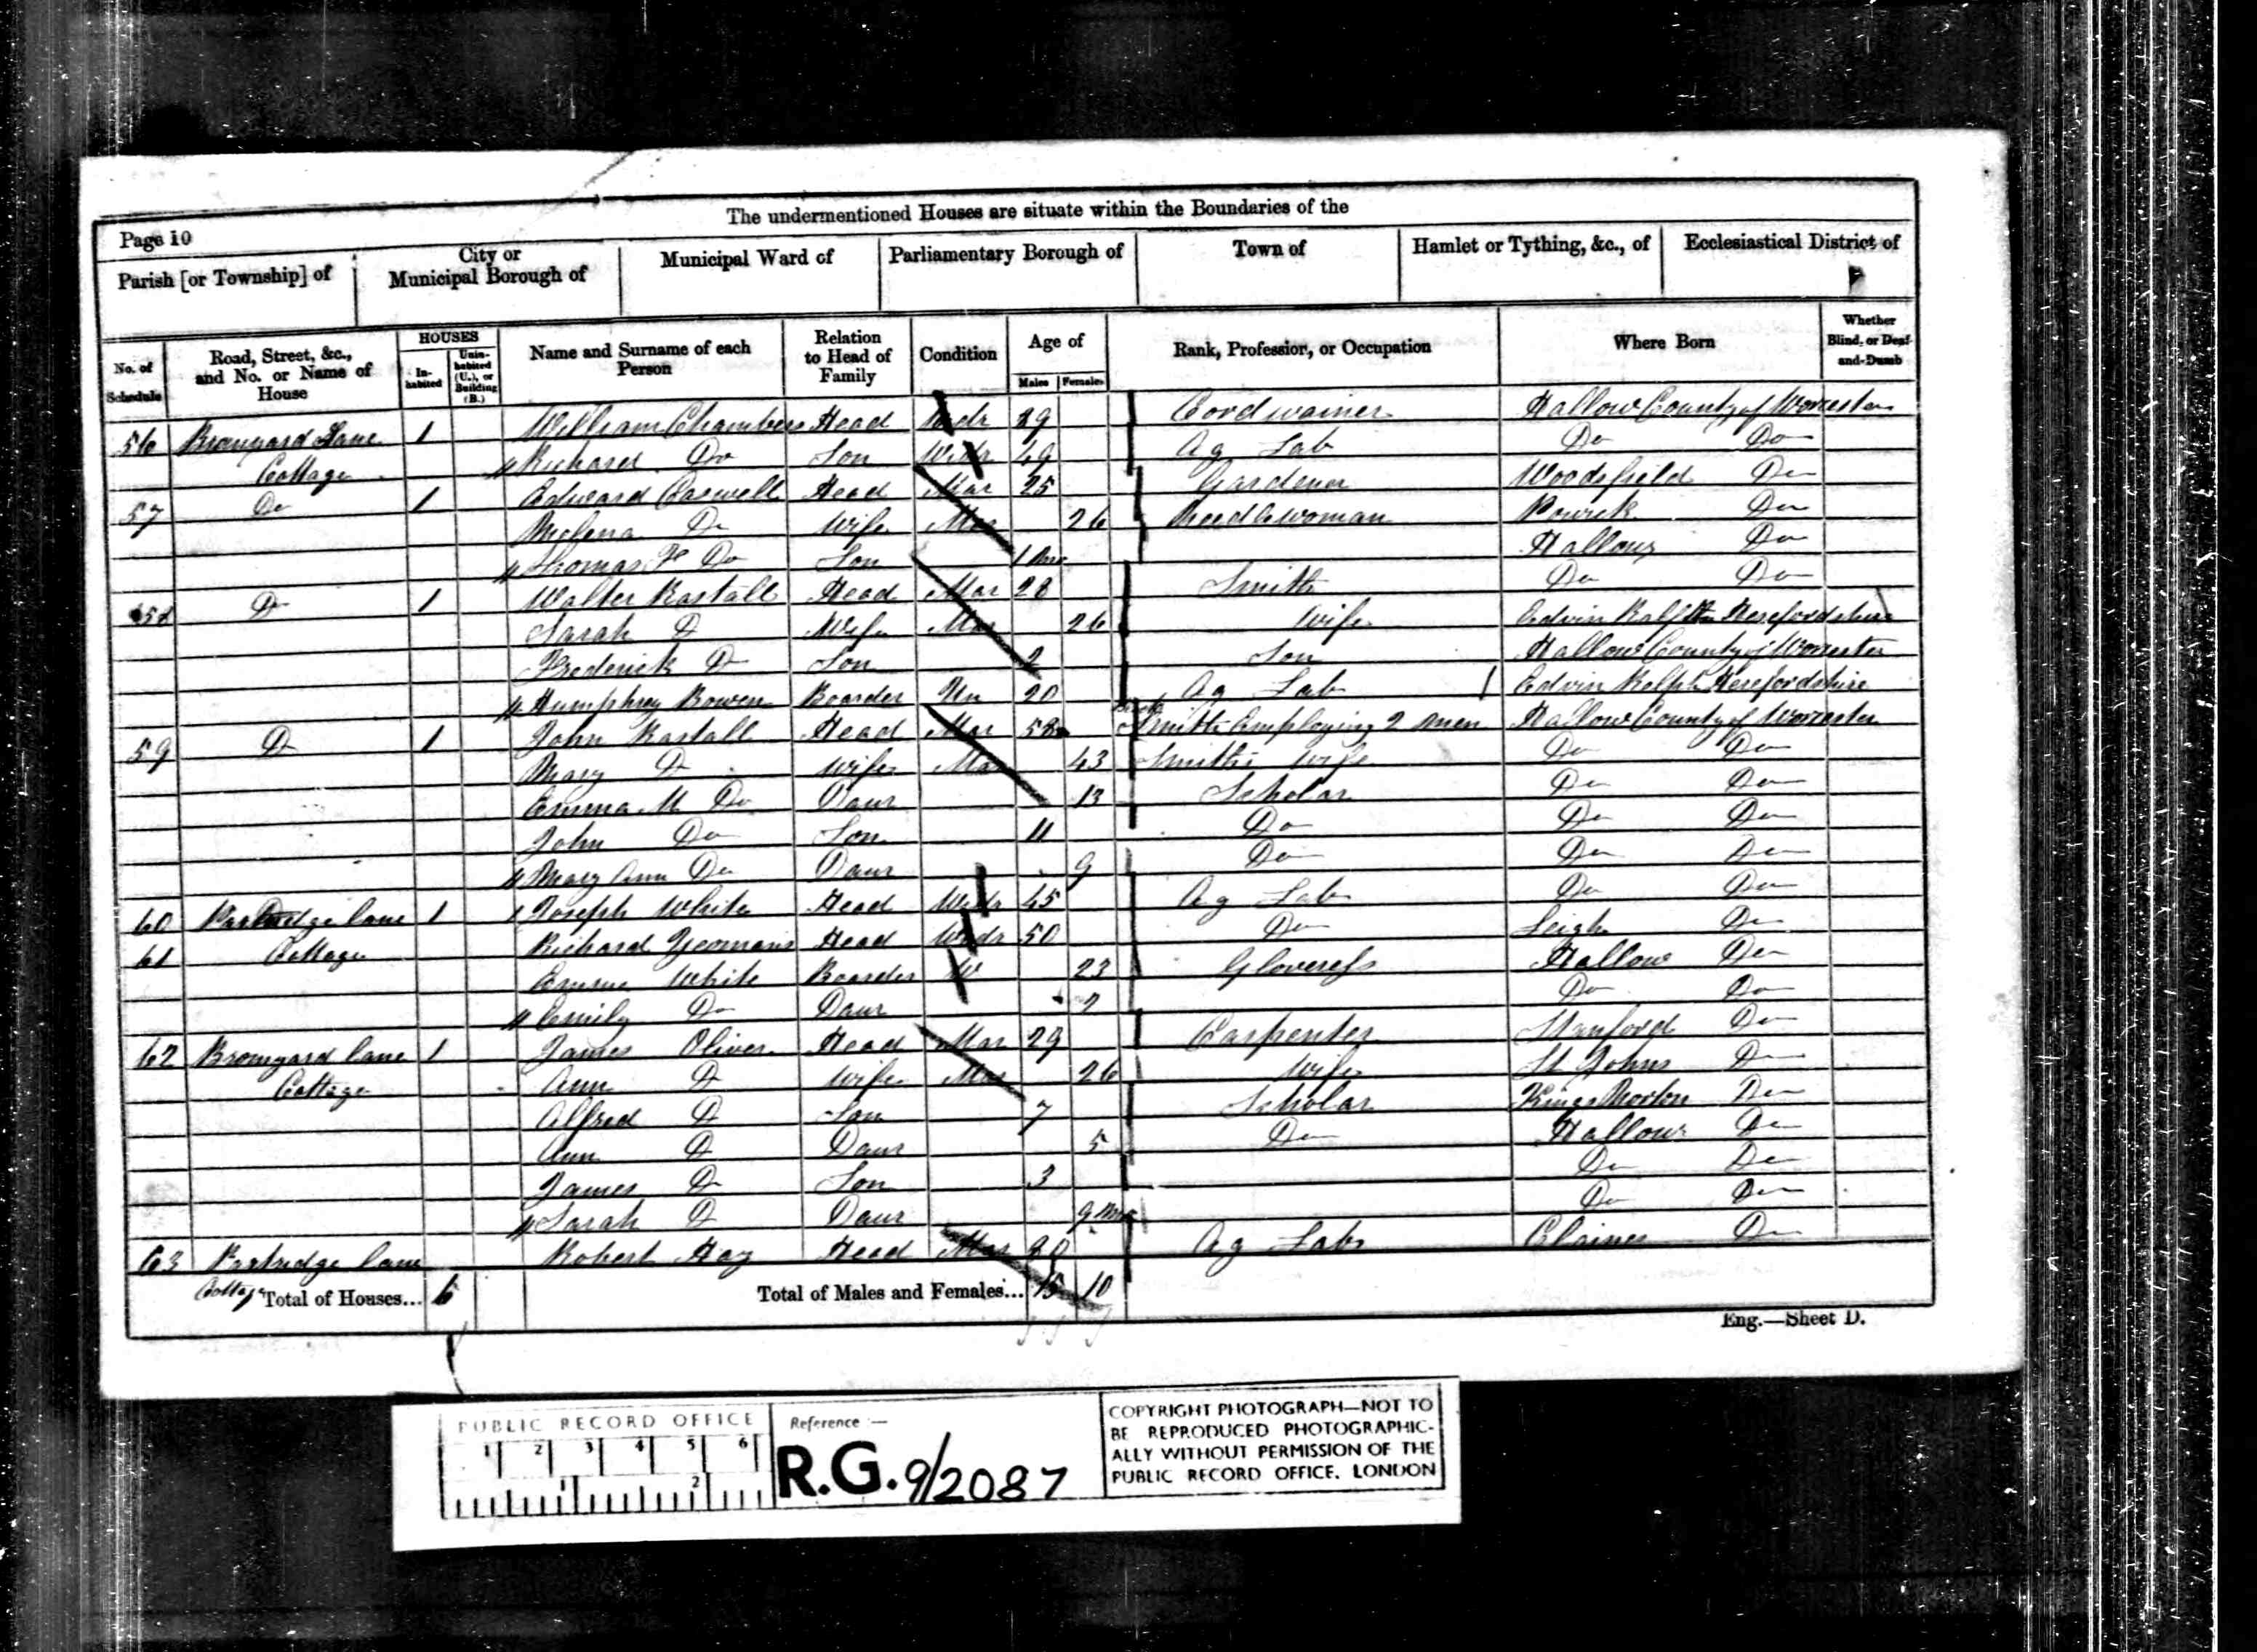 The undermentioned Houses are situate within the Boundaries of the
Page 10
Parish [or Township] of
City or Municipal Borough of
Municipal Ward of
Parliamentary Borough of
Town of
Hamlet or Tything, &c., of
Ecclesiastical District of
No. of Schedule
Road, Street, &c., and No. or Name of House
HOUSES
In-habited
Unin-habited (U.), or Building (B.)
Name and Surname of each Person
Relation to Head of Family
Condition
Age of
Males
Females
Rank, Profession, or Occupation
Where Born
Whether Blind, or Deaf-and-Dumb
56 Bromyard Lane 1 William Chambers Head Widr Cordwainer Hallow County of Worcester
Cottage Richard Do Son Widr 49 Ag Lab Do Do
57 Do 1 Edward Caswell Head Mar 25 Gardener Woodsfield Do
Do Wife Mar 26 Needlewoman Powick Do
Thomas F Do Son 1 Mo Hallow Do
58 Do 1 Walter Rastall Head Mar 28 Smith Do Do
Sarah Do Wife Mar 26 Wife Edvin Ralph Herefordshire
Frederick Do Son 2 Son Hallow County of Worcester
Humphrey Bowen Boarder Un 20 Ag Lab Edvin Ralph Herefordshire
59 Do 1 John Rastall Head Mar 58 Smith Employing 2 men Hallow County of Worcester
Mary Do Wife Mar 43 Smith's wife Do Do
Emma M Do Daur 13 Scholar Do Do
John Do Son 11 Do Do Do
Mary Ann Do Daur 9 Do Do Do
60 Partridge lane 1 Joseph White Head Widr 45 Ag Lab Do Do
61 Cottage Richard Yeomans Head Widr 50 Do Leigh Do
White Boarder W 23 Gloveress Hallow Do
Emily Do Daur 2 Do Do
62 Bromyard lane 1 James Oliver Head Mar 29 Carpenter Stanford Do
Cottage Ann Do Wife Mar 26 Wife St Johns Do
Alfred Do Son 7 Scholar Kings Norton Do
Ann Do Daur 5 Do Hallow Do
James Do Son 3 Do Do
Sarah Do Daur 9 Mos Do Do
63 Partridge lane Robert Hay Head Mar Ag Lab Claines Do
Cottage Total of Houses... 6 Total of Males and Females... 15 10
Eng.—Sheet D.
PUBLIC RECORD OFFICE
1 2 3 4 5 6
1 2
Reference :—
R.G. 9/2087
COPYRIGHT PHOTOGRAPH—NOT TO
BE REPRODUCED PHOTOGRAPHIC-
ALLY WITHOUT PERMISSION OF THE
PUBLIC RECORD OFFICE. LONDON